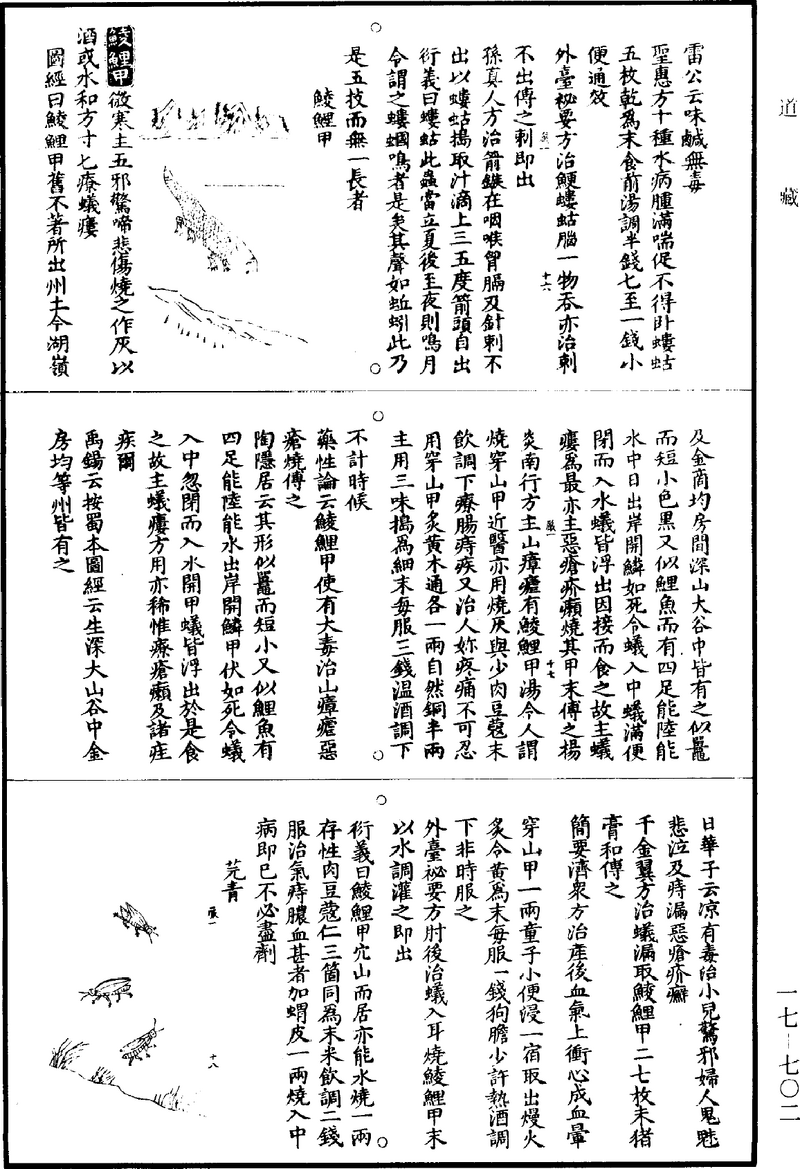 道藏
雷公云味鹹無毒
聖惠方十種水病腫滿喘促不得卧螻蛄
五枚乾爲末食前湯調半錢七至一錢小
便通效
外臺祕要方治鯁螻蛄腦一物吞亦治刺
不出傅之刺即出
孫真人方治箭鏃在咽喉胷膈及針刺不
出以螻蛄搗取汁滴上三五度箭頭自出
衍義曰螻蛄此蟲當立夏後至夜則鳴月
令謂之螻蟈鳴者是矣其聲如蚯蚓此乃
是五技而無一長者
鯪鯉甲
鯪鯉甲微寒主五邪驚啼悲傷燒之作灰以
酒或水和方寸七療蟻瘻
圖經曰鯪鯉甲舊不著所出州土今湖嶺
十六
及金商均房間深山大谷中皆有之似鼉
而短小色黑又似鯉魚而有四足能陸能
水中日出岸開鱗如死令蟻入中蟻滿便
閉而入水蟻皆浮出因接而食之故主蟻
瘻爲最亦主惡瘡疥癩燒其甲末傅之楊
炎南行方主山瘴瘧有鯪鯉甲湯今人謂
燒穿山甲近醫亦用燒灰與少肉豆蔻末
飲調下療腸痔疾又治人妳疼痛不可忍
用穿山甲炙黄木通各一兩自然銅半兩
主用三味搗爲細末每服三錢温酒調下
不計時候
藥性論云鯪鯉甲使有大毒治山瘴瘧惡
瘡燒傅之
陶隱居云其形似鼉而短小又似鯉魚有
四足能陸能水出岸開鱗甲伏如死令蟻
入中忽閉而入水開甲蟻皆浮出於是食
之故主蟻瘻方用亦稀惟療瘡癩及諸疰
疾爾
禹錫云按蜀本圖經云生深大山谷中金
房均等州皆有之
十七
日華子云凉有毒治小兒驚邪婦人鬼魅
悲泣及痔漏惡瘡疥癬
千金翼方治蟻漏取鯪鯉甲二七枚末猪
膏和傅之
簡要濟衆方治產後血氣上衝心成血暈
穿山甲一兩童子小便浸一宿取出熳火
炙令黄爲末每服一錢狗膽少許熱酒調
下非時服之
外臺祕要方肘後治蟻入耳燒鯪鯉甲末
以水調灌之即出
衍義曰鯪鯉甲穴山而居亦能水燒一兩
存性肉豆蔻仁三箇同爲末米飲調二錢
服治氣痔膿血甚者加蝟皮一兩燒入中
病即已不必盡劑
芫青
十八
一七—七〇二